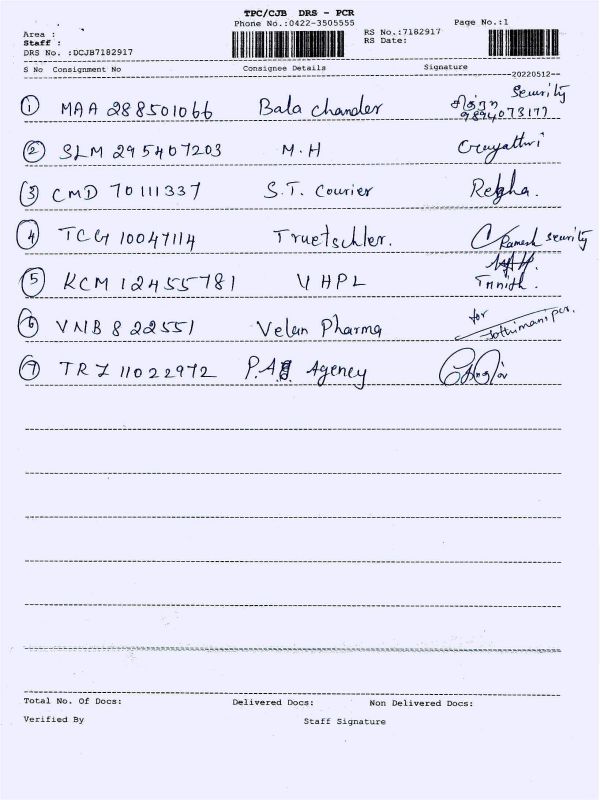 TPC/CJB DRS - PCR
Phone No.:0422-3505555 Page No.:1
Area :
Staff :
DRS No. :DCJB7182917
RS No.:7182917
RS Date:
S No Consignment No Consignee Details Signature
--20220512--
1 MAA 288501066 Bala chander சித்ரா Security
9894073177
2 SLM 295407203 M.H Gayathri
3 CMD 70111337 S.T. Courier Rekha.
4 TCG 10047114 Truetschler. Ramesh security
5 KCM 12455781 VHPL
6 VNB 822551 Velan Pharma for Jothimani pcr.
7 TRZ 11022972 P.A. Agency
Total No. Of Docs: Delivered Docs: Non Delivered Docs:
Verified By Staff Signature